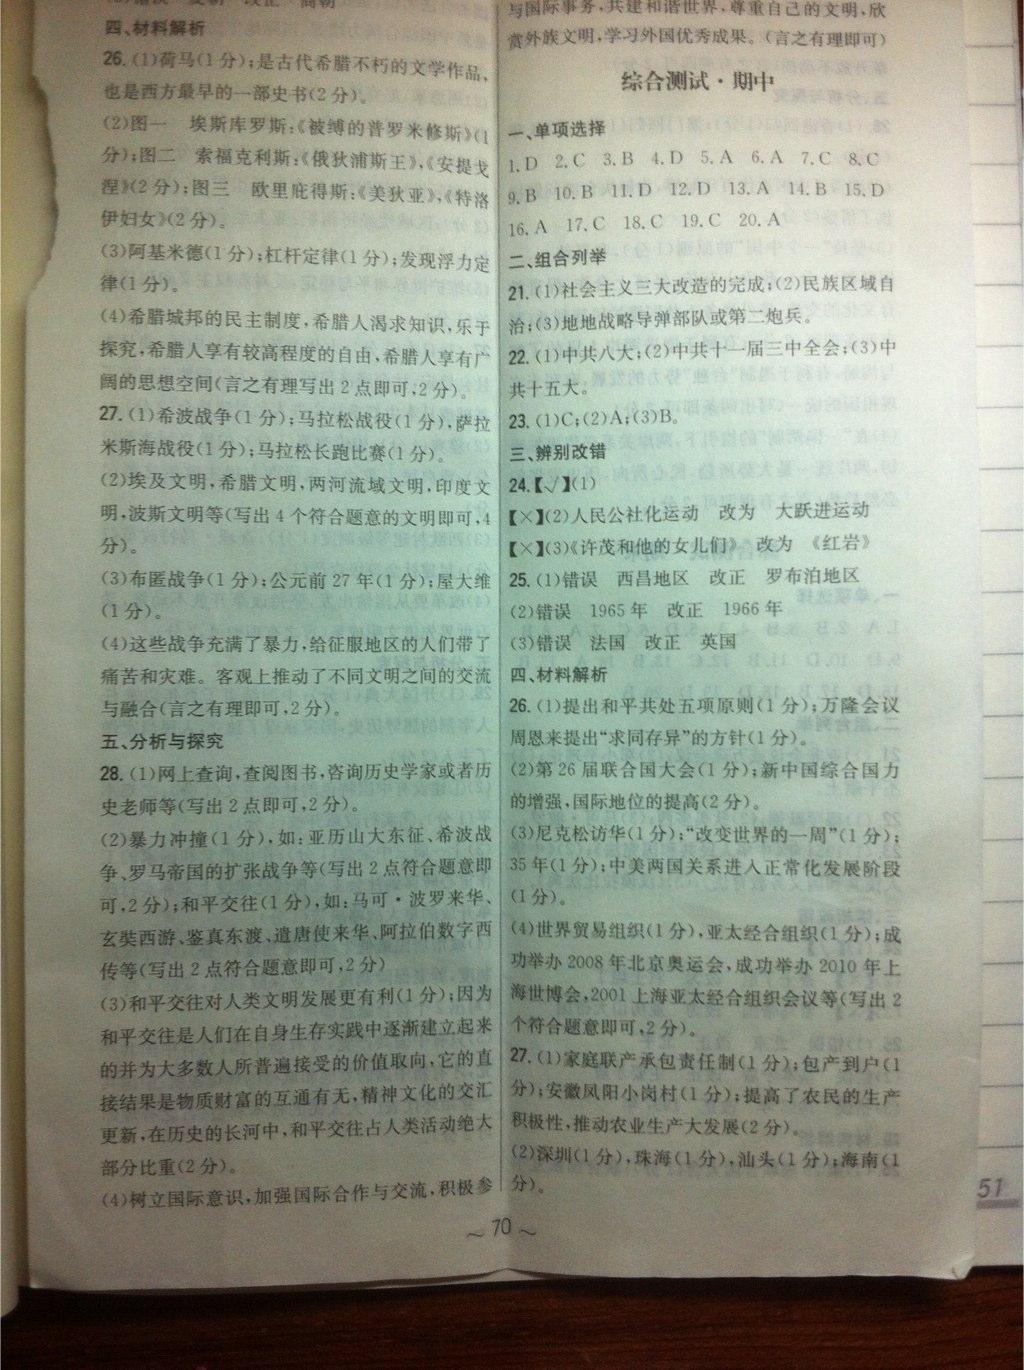 四、材料解析
26.(1)荷马(1分);是古代希腊不朽的文学作品、
也是西方最早的一部史书(2分)。
(2)图一　埃斯库罗斯:《被缚的普罗米修斯》(1
分);图二　索福克利斯:《俄狄浦斯王》,《安提戈
涅》(2分);图三　欧里庇得斯:《美狄亚》,《特洛
伊妇女》(2分)。
(3)阿基米德(1分);杠杆定律(1分);发现浮力定
律(1分)。
(4)希腊城邦的民主制度,希腊人渴求知识,乐于
探究,希腊人享有较高程度的自由,希腊人享有广
阔的思想空间(言之有理写出2点即可,2分)。
27.(1)希波战争(1分);马拉松战役(1分),萨拉
米斯海战役(1分);马拉松长跑比赛(1分)。
(2)埃及文明,希腊文明,两河流域文明,印度文
明,波斯文明等(写出4个符合题意的文明即可,4
分)。
(3)布匿战争(1分);公元前27年(1分);屋大维
(1分)。
(4)这些战争充满了暴力,给征服地区的人们带了
痛苦和灾难。客观上推动了不同文明之间的交流
与融合(言之有理即可,2分)。
五、分析与探究
28.(1)网上查询,查阅图书,咨询历史学家或者历
史老师等(写出2点即可,2分)。
(2)暴力冲撞(1分),如:亚历山大东征、希波战
争、罗马帝国的扩张战争等(写出2点符合题意即
可,2分);和平交往(1分),如:马可·波罗来华、
玄奘西游、鉴真东渡、遣唐使来华、阿拉伯数字西
传等(写出2点符合题意即可,2分)
(3)和平交往对人类文明发展更有利(1分);因为
和平交往是人们在自身生存实践中逐渐建立起来
的并为大多数人所普遍接受的价值取向,它的直
接结果是物质财富的互通有无,精神文化的交汇
更新,在历史的长河中,和平交往占人类活动绝大
部分比重(2分)。
(4)树立国际意识,加强国际合作与交流,积极参
与国际事务,共建和谐世界,尊重自己的文明,欣
赏外族文明,学习外国优秀成果。(言之有理即可)
综合测试·期中
一、单项选择
1.D　2.C　3.B　4.D　5.A　6.A　7.C　8.C
9.B　10.B　11.D　12.D　13.A　14.B　15.D
16.A　17.C　18.C　19.C　20.A
二、组合列举
21.(1)社会主义三大改造的完成;(2)民族区域自
治;(3)地地战略导弹部队或第二炮兵。
22.(1)中共八大;(2)中共十一届三中全会;(3)中
共十五大。
23.(1)C;(2)A;(3)B。
三、辨别改错
24.【√】(1)
【×】(2)人民公社化运动　改为　大跃进运动
【×】(3)《许茂和他的女儿们》　改为　《红岩》
25.(1)错误　西昌地区　改正　罗布泊地区
(2)错误　1965年　改正　1966年
(3)错误　法国　改正　英国
四、材料解析
26.(1)提出和平共处五项原则(1分);万隆会议
周恩来提出“求同存异”的方针(1分)。
(2)第26届联合国大会(1分);新中国综合国力
的增强,国际地位的提高(2分)。
(3)尼克松访华(1分);“改变世界的一周”(1分);
35年(1分);中美两国关系进入正常化发展阶段
(1分)。
(4)世界贸易组织(1分),亚太经合组织(1分);成
功举办2008年北京奥运会,成功举办2010年上
海世博会,2001上海亚太经合组织会议等(写出2
个符合题意即可,2分)。
27.(1)家庭联产承包责任制(1分);包产到户(1
分);安徽凤阳小岗村(1分);提高了农民的生产
积极性,推动农业生产大发展(2分)。
(2)深圳(1分),珠海(1分),汕头(1分);海南(1
分)。
~70~
51